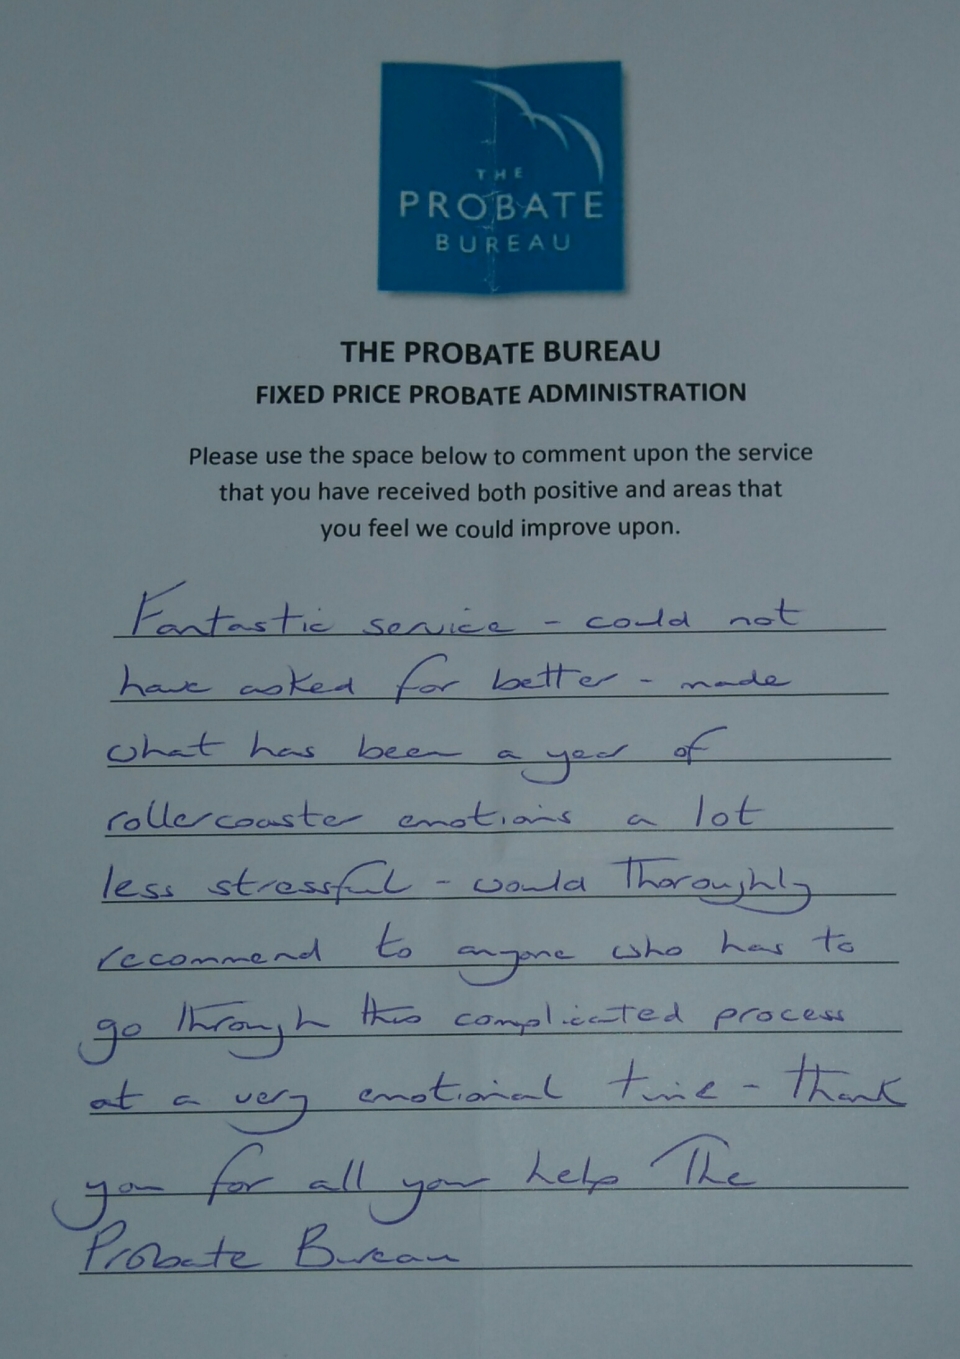 THE
PROBATE
BUREAU
THE PROBATE BUREAU
FIXED PRICE PROBATE ADMINISTRATION
Please use the space below to comment upon the service
that you have received both positive and areas that
you feel we could improve upon.
Fantastic service - could not
have asked for better - made
what has been a year of
rollercoaster emotions a lot
less stressful - would thoroughly
recommend to anyone who has to
go through this complicated process
at a very emotional time - thank
you for all your help The
Probate Bureau